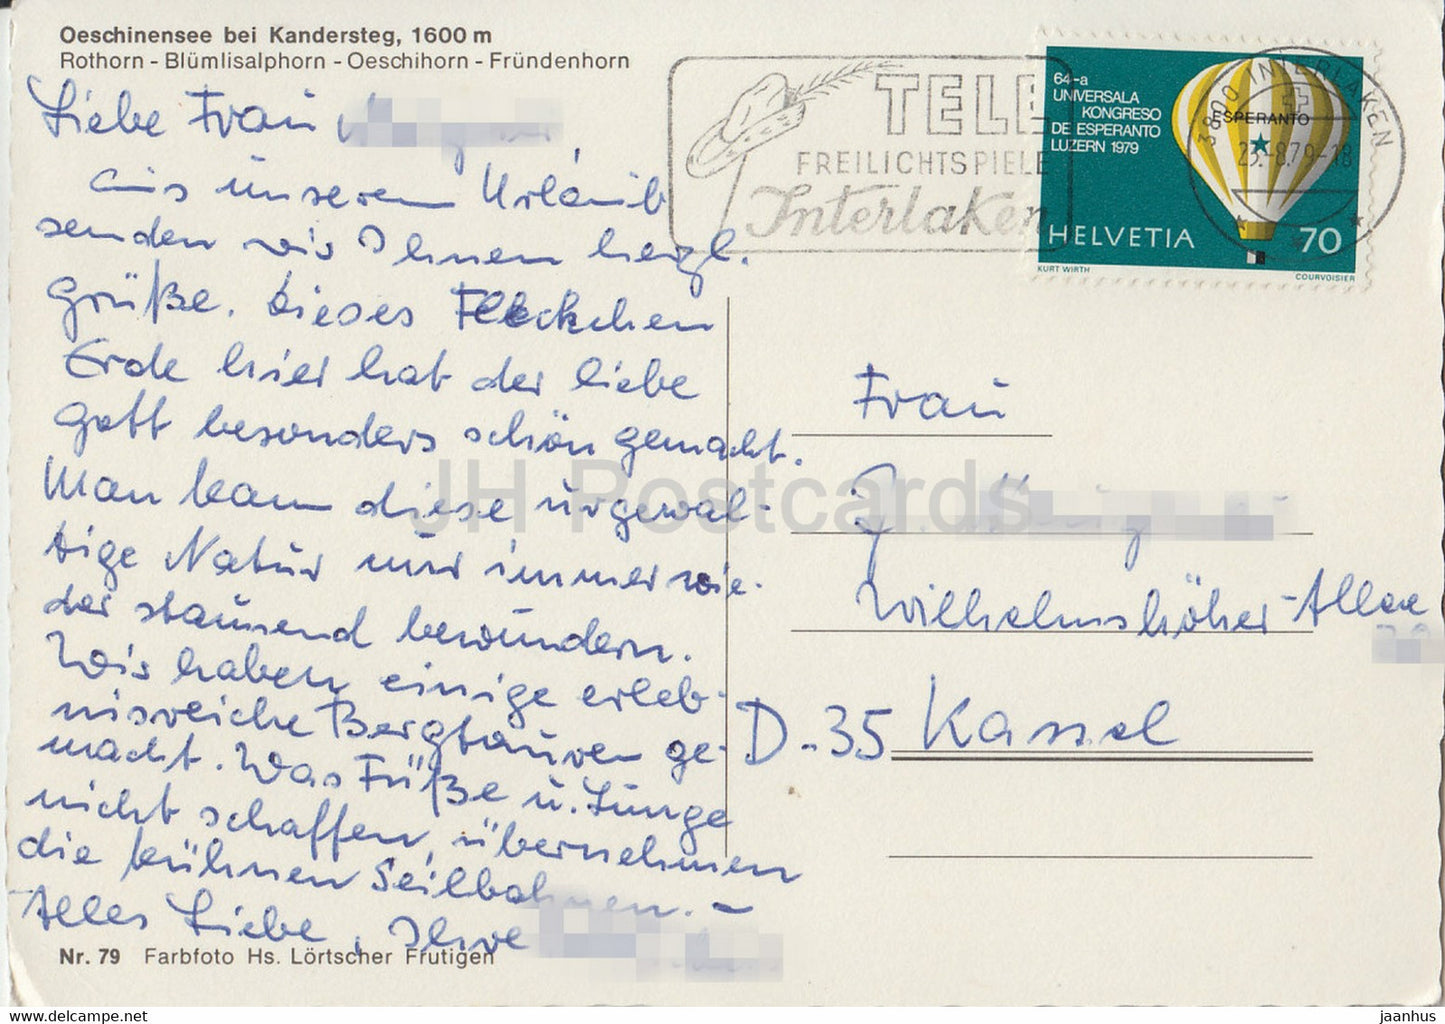 Oeschinensee bei Kandersteg, 1600 m
Rothorn - Blümlisalphorn - Oeschihorn - Fründenhorn
Liebe Frau
aus unserem Urlaub
senden wir Ihnen herzl.
Grüße. Dieses Fleckchen
Erde hier hat der liebe
Gott besonders schön gemacht.
Man kann diese urgewal-
tige Natur nur immer wie-
der staunend bewundern.
Wir haben einige erleb-
nisreiche Bergtouren ge-
macht. Was Füße u. Lunge
nicht schaffen, übernehmen
die kühnen Seilbahnen. –
Alles Liebe, Ihre
Nr. 79 Farbfoto Hs. Lörtscher Frutigen
TELL
FREILICHTSPIELE
Interlaken
3800 INTERLAKEN
23.-8.79-18
64-a
UNIVERSALA
KONGRESO
DE ESPERANTO
LUZERN 1979
ESPERANTO
HELVETIA 70
KURT WIRTH COURVOISIER
Frau
Wilhelmshöher-Allee
D-35 Kassel
JH Postcards
https://delcampe.net/en/store/jaanhus
jaanhus